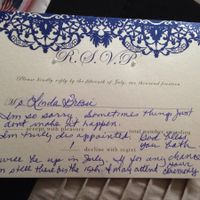 R.S.V.P.
Kindly reply by the fifteenth of July, two thousand fourteen
M s. Linda
I'm so sorry, sometimes things just
don't make it happen.
accept with pleasure
total number attending
I'm truly disappointed. God bless
you both
decline with regret
be up in July. If for any chance
I'm still there on the 19th, I may attend your